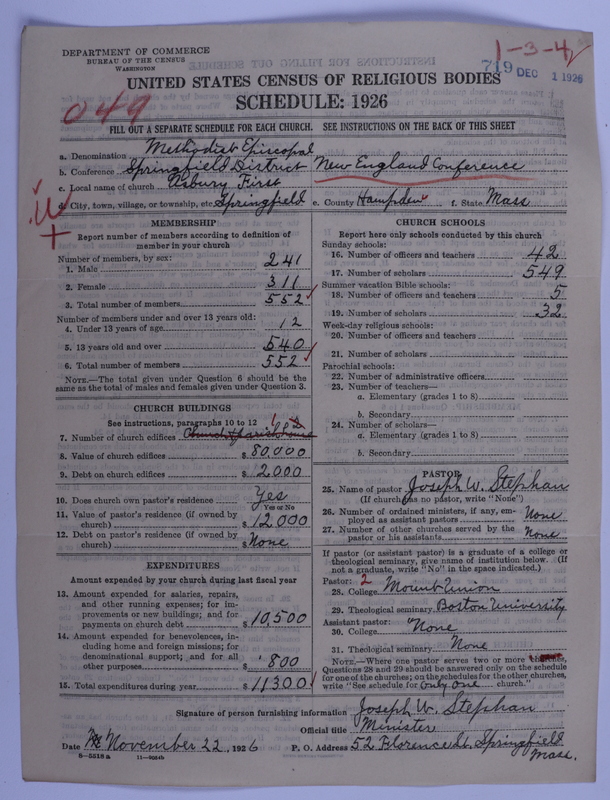 DEPARTMENT OF COMMERCE
BUREAU OF THE CENSUS
WASHINGTON
1-3-4
719 DEC 1 1926
UNITED STATES CENSUS OF RELIGIOUS BODIES
SCHEDULE: 1926
049
FILL OUT A SEPARATE SCHEDULE FOR EACH CHURCH. SEE INSTRUCTIONS ON THE BACK OF THIS SHEET
a. Denomination Methodist Episcopal
b. Conference Springfield District New England Conference
c. Local name of church Asbury First
d. City, town, village, or township, etc. Springfield e. County Hampden f. State Mass
MEMBERSHIP
Report number of members according to definition of
member in your church
Number of members, by sex:
1. Male 241
2. Female 311
3. Total number of members 552
Number of members under and over 13 years old:
4. Under 13 years of age 12
5. 13 years old and over 540
6. Total number of members 552
NOTE.—The total given under Question 6 should be the
same as the total of males and females given under Question 3.
CHURCH BUILDINGS
See instructions, paragraphs 10 to 12
7. Number of church edifices Church & Parish house
8. Value of church edifices $ 80,000
9. Debt on church edifices $ 2000
10. Does church own pastor's residence Yes
Yes or No
11. Value of pastor's residence (if owned by
church) $ 12000
12. Debt on pastor's residence (if owned by
church) $ None
EXPENDITURES
Amount expended by your church during last fiscal year
13. Amount expended for salaries, repairs,
and other running expenses; for im-
provements or new buildings; and for
payments on church debt $ 10,500
14. Amount expended for benevolences, in-
cluding home and foreign missions; for
denominational support; and for all
other purposes $ 800
15. Total expenditures during year $ 11300
CHURCH SCHOOLS
Report here only schools conducted by this church
Sunday schools:
16. Number of officers and teachers 42
17. Number of scholars 549
Summer vacation Bible schools:
18. Number of officers and teachers 5
19. Number of scholars 32
Week-day religious schools:
20. Number of officers and teachers
21. Number of scholars
Parochial schools:
22. Number of administrative officers
23. Number of teachers—
a. Elementary (grades 1 to 8)
b. Secondary
24. Number of scholars—
a. Elementary (grades 1 to 8)
b. Secondary
PASTOR
25. Name of pastor Joseph W. Stephan
(If church has no pastor, write "None")
26. Number of ordained ministers, if any, em-
ployed as assistant pastors None
27. Number of other churches served by the
pastor or his assistants None
If pastor (or assistant pastor) is a graduate of a college or
theological seminary, give name of institution below. (If
not a graduate, write "No" in the space indicated.)
Pastor: 2
28. College Mount Union
29. Theological seminary Boston University
Assistant pastor:
30. College None
31. Theological seminary None
NOTE.—Where one pastor serves two or more churches,
Questions 28 and 29 should be answered only on the schedule
for one of the churches; on the schedules for the other churches,
write "See schedule for only one church."
Signature of person furnishing information Joseph W. Stephan
Official title Minister
Date November 22, 1926 P. O. Address 52 Florence St. Springfield
Mass.
8—5518a 11—9064b